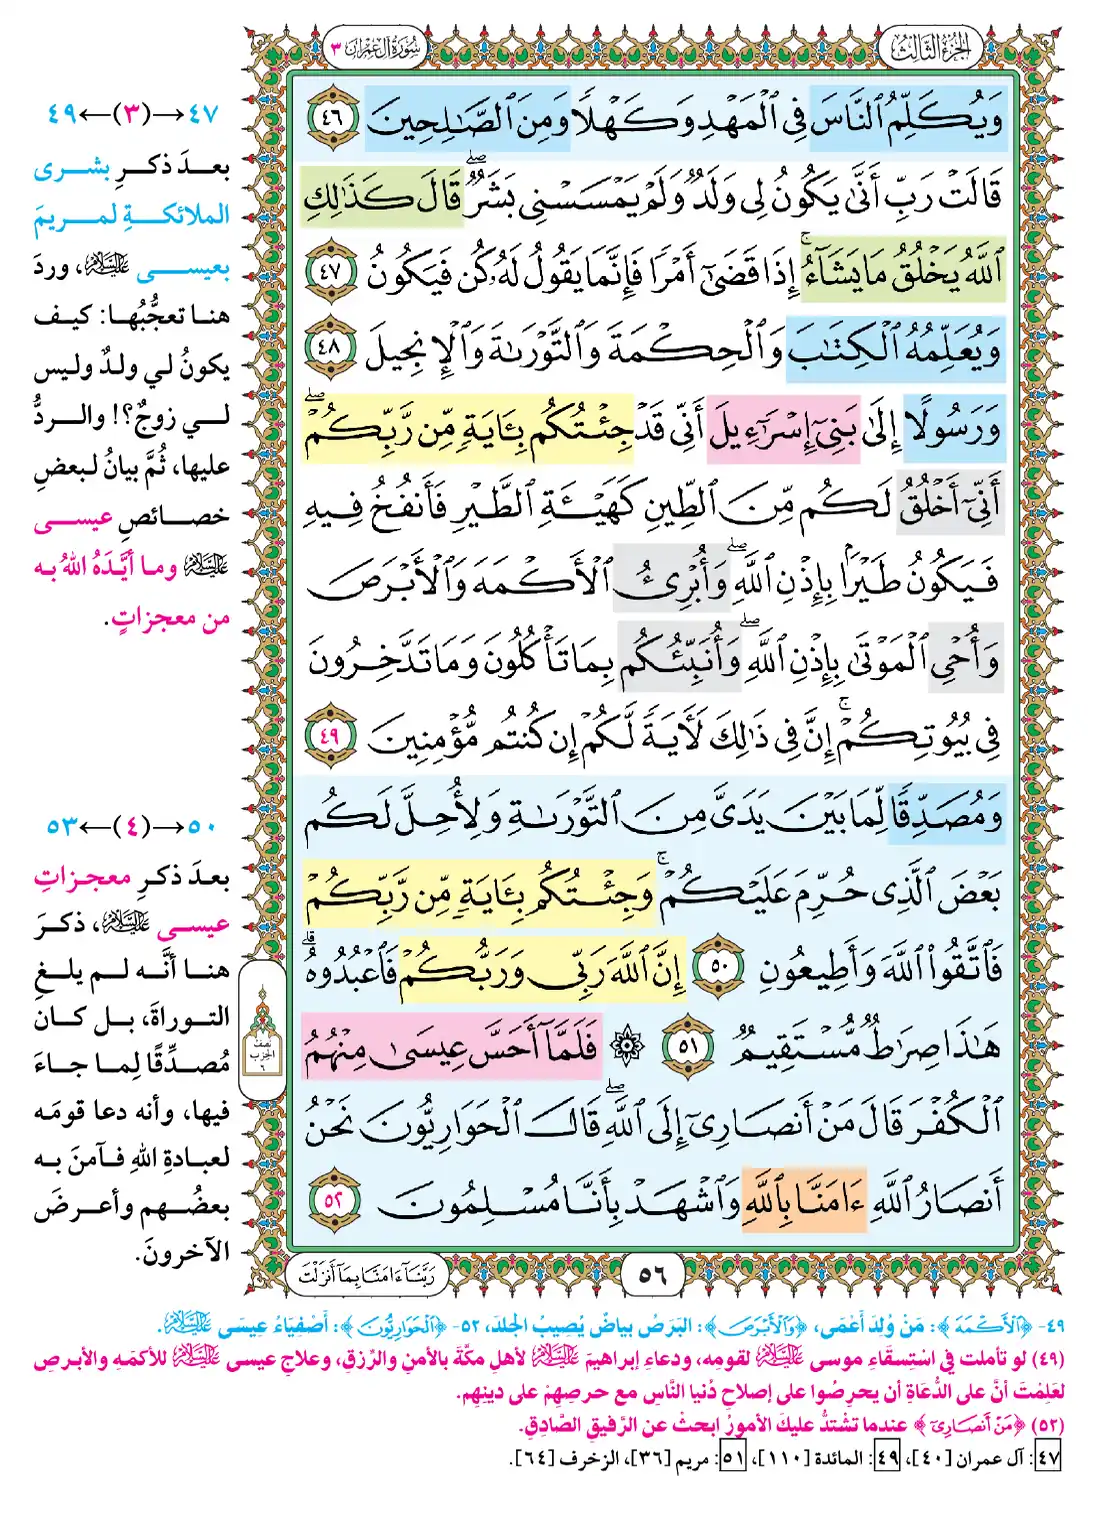 الجزء الثالث
سورة آل عمران ٣
وَيُكَلِّمُ ٱلنَّاسَ فِى ٱلْمَهْدِ وَكَهْلًا وَمِنَ ٱلصَّـٰلِحِينَ ٤٦
قَالَتْ رَبِّ أَنَّىٰ يَكُونُ لِى وَلَدٌ وَلَمْ يَمْسَسْنِى بَشَرٌ ۖ قَالَ كَذَٰلِكِ
ٱللَّهُ يَخْلُقُ مَا يَشَآءُ ۚ إِذَا قَضَىٰٓ أَمْرًا فَإِنَّمَا يَقُولُ لَهُۥ كُن فَيَكُونُ ٤٧
وَيُعَلِّمُهُ ٱلْكِتَـٰبَ وَٱلْحِكْمَةَ وَٱلتَّوْرَىٰةَ وَٱلْإِنجِيلَ ٤٨
وَرَسُولًا إِلَىٰ بَنِىٓ إِسْرَٰٓءِيلَ أَنِّى قَدْ جِئْتُكُم بِـَٔايَةٍ مِّن رَّبِّكُمْ ۖ
أَنِّىٓ أَخْلُقُ لَكُم مِّنَ ٱلطِّينِ كَهَيْـَٔةِ ٱلطَّيْرِ فَأَنفُخُ فِيهِ
فَيَكُونُ طَيْرًۢا بِإِذْنِ ٱللَّهِ ۖ وَأُبْرِئُ ٱلْأَكْمَهَ وَٱلْأَبْرَصَ
وَأُحْىِ ٱلْمَوْتَىٰ بِإِذْنِ ٱللَّهِ ۖ وَأُنَبِّئُكُم بِمَا تَأْكُلُونَ وَمَا تَدَّخِرُونَ
فِى بُيُوتِكُمْ ۚ إِنَّ فِى ذَٰلِكَ لَـَٔايَةً لَّكُمْ إِن كُنتُم مُّؤْمِنِينَ ٤٩
وَمُصَدِّقًا لِّمَا بَيْنَ يَدَىَّ مِنَ ٱلتَّوْرَىٰةِ وَلِأُحِلَّ لَكُم
بَعْضَ ٱلَّذِى حُرِّمَ عَلَيْكُمْ ۚ وَجِئْتُكُم بِـَٔايَةٍ مِّن رَّبِّكُمْ
فَٱتَّقُوا۟ ٱللَّهَ وَأَطِيعُونِ ٥٠ إِنَّ ٱللَّهَ رَبِّى وَرَبُّكُمْ فَٱعْبُدُوهُ ۗ
هَـٰذَا صِرَٰطٌ مُّسْتَقِيمٌ ٥١ ۞ فَلَمَّآ أَحَسَّ عِيسَىٰ مِنْهُمُ
ٱلْكُفْرَ قَالَ مَنْ أَنصَارِىٓ إِلَى ٱللَّهِ ۖ قَالَ ٱلْحَوَارِيُّونَ نَحْنُ
أَنصَارُ ٱللَّهِ ءَامَنَّا بِٱللَّهِ وَٱشْهَدْ بِأَنَّا مُسْلِمُونَ ٥٢
٥٦
رَبَّنَآ ءَامَنَّا بِمَآ أَنزَلْتَ
نصف
الحزب
٦
٤٧→(٣)←٤٩
بعدَ ذكرِ بشرى
الملائكةِ لمريمَ
بعيسى عليه السلام، وردَ
هنا تعجُّبُها: كيف
يكونُ لي ولدٌ وليس
لي زوجٌ؟! والردُّ
عليها، ثُمَّ بيانُ لبعضِ
خصائصِ عيسى
عليه السلام وما أيَّدَهُ اللهُ به
من معجزاتٍ.
٥٠→(٤)←٥٣
بعدَ ذكرِ معجزاتِ
عيسى عليه السلام، ذكرَ
هنا أنَّه لم يلغِ
التوراةَ، بل كان
مُصدِّقًا لِما جاءَ
فيها، وأنه دعا قومَه
لعبادةِ اللهِ فآمنَ به
بعضُهم وأعرضَ
الآخرونَ.
٤٩- ﴿ٱلْأَكْمَهَ﴾: مَنْ وُلِدَ أَعْمَى، ﴿وَٱلْأَبْرَصَ﴾: البَرَصُ بياضٌ يُصِيبُ الجلدَ، ٥٢- ﴿ٱلْحَوَارِيُّونَ﴾: أصْفِيَاءُ عِيسَى عليه السلام.
(٤٩) لو تأملت في اسْتِسقَاءِ موسى عليه السلام لقومِه، ودعاءِ إبراهيمَ عليه السلام لأهلِ مكَّةَ بالأمنِ والرِّزقِ، وعلاجِ عيسى عليه السلام للأكمَهِ والأبرصِ
لعَلِمْتَ أنَّ على الدُّعَاةِ أن يحرِصُوا على إصلاحِ دُنيا النَّاسِ مع حرصِهِمْ على دينِهِم.
(٥٢) ﴿مَنْ أَنصَارِىٓ﴾ عندما تشْتدُّ عليكَ الأمورُ ابحثْ عن الرَّفيقِ الصَّادِقِ.
٤٧: آل عمران [٤٠]، ٤٩: المائدة [١١٠]، ٥١: مريم [٣٦]، الزخرف [٦٤].